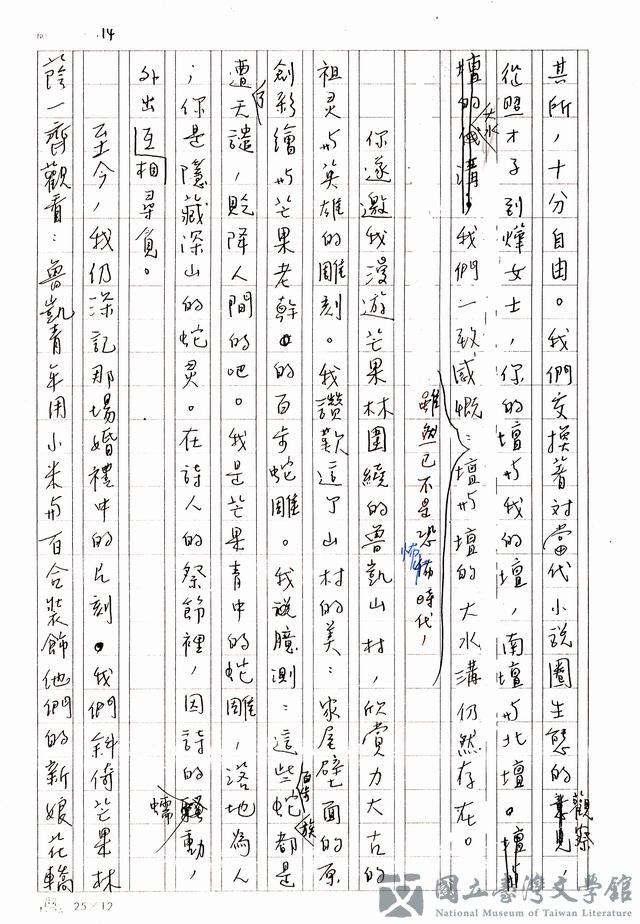 14
其所，十分自由。我們交換著对當代小說圈生態的觀察，
從照才子到燁女士，你的壇与我的壇，南壇与北壇。
大水溝，我們一致感慨：壇与壇的大水溝仍然存在。
雖然已不是恐怖時代，
你遂邀我漫遊芒果林圍繞的魯凱山村，欣賞力大古的
祖灵与英雄的雕刻。我讚歎這了山村的美：家屋壁面的原
創彩繪与芒果老幹的百步蛇雕。我說臆測：這些百步蛇族都是
遭了天譴，貶降人間的吧。我是芒果青中的蛇雕，落地為人
；你是隱藏深山的蛇灵。在詩人的祭節裡，因詩的蠕動，
外出互相尋負。
至今，我仍深記那場婚禮中的片刻。我們斜倚芒果林
蔭一齊觀看：魯凱青年用小米与百合裝飾他們的新娘花轎
25×12
國立臺灣文學館
National Museum of Taiwan Literature